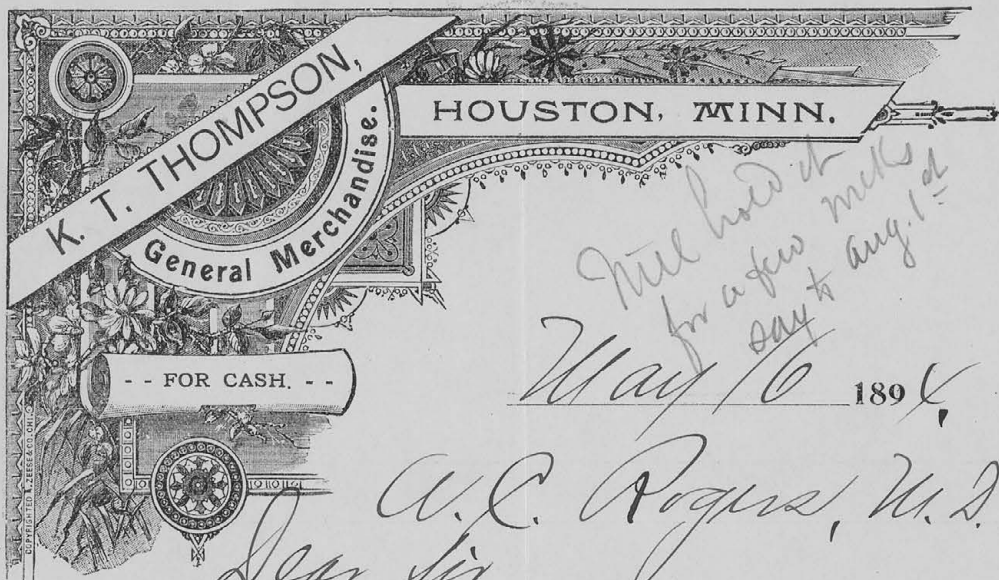 K. T. THOMPSON,
General Merchandise.
HOUSTON, MINN.
- - FOR CASH. - -
Will hold it
for a few weeks
say to Aug. 1st
May 16 1894,
A. C. Rogers, M.D.
Dear Sir